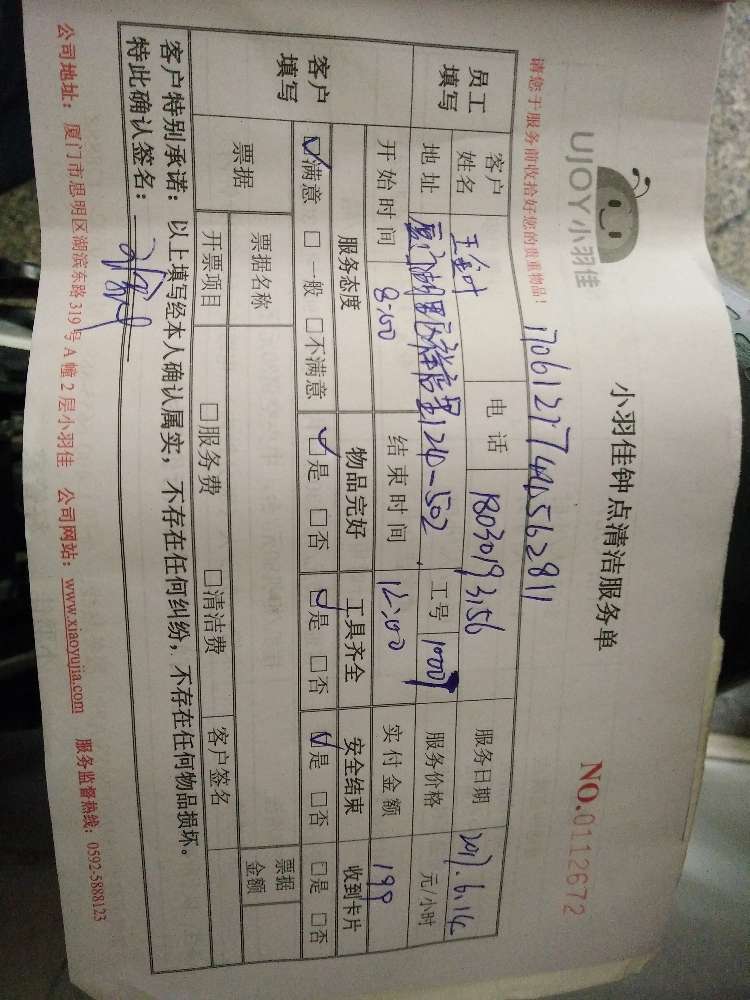 UJOY小羽佳
小羽佳钟点清洁服务单
NO.0112672
请您于服务前收拾好您的贵重物品!
员工填写 客户姓名 电话 服务日期 2017.6.14
地址 工号 服务价格 元/小时
客户填写 开始时间 8:00 结束时间 12:00 实付金额 199
服务态度 物品完好 工具齐全 安全结束 收到卡片
☑满意 □一般 □不满意 ☑是 □否 ☑是 □否 ☑是 □否 □是 □否
票据 票据名称 票据金额
开票项目 □服务费 □清洁费 客户签名
客户特别承诺：以上填写经本人确认属实，不存在任何纠纷，不存在任何物品损坏。
特此确认签名：
公司地址：厦门市思明区湖滨东路319号A幢2层小羽佳 公司网站：www.xiaoyujia.com 服务监督热线：0592-5888123